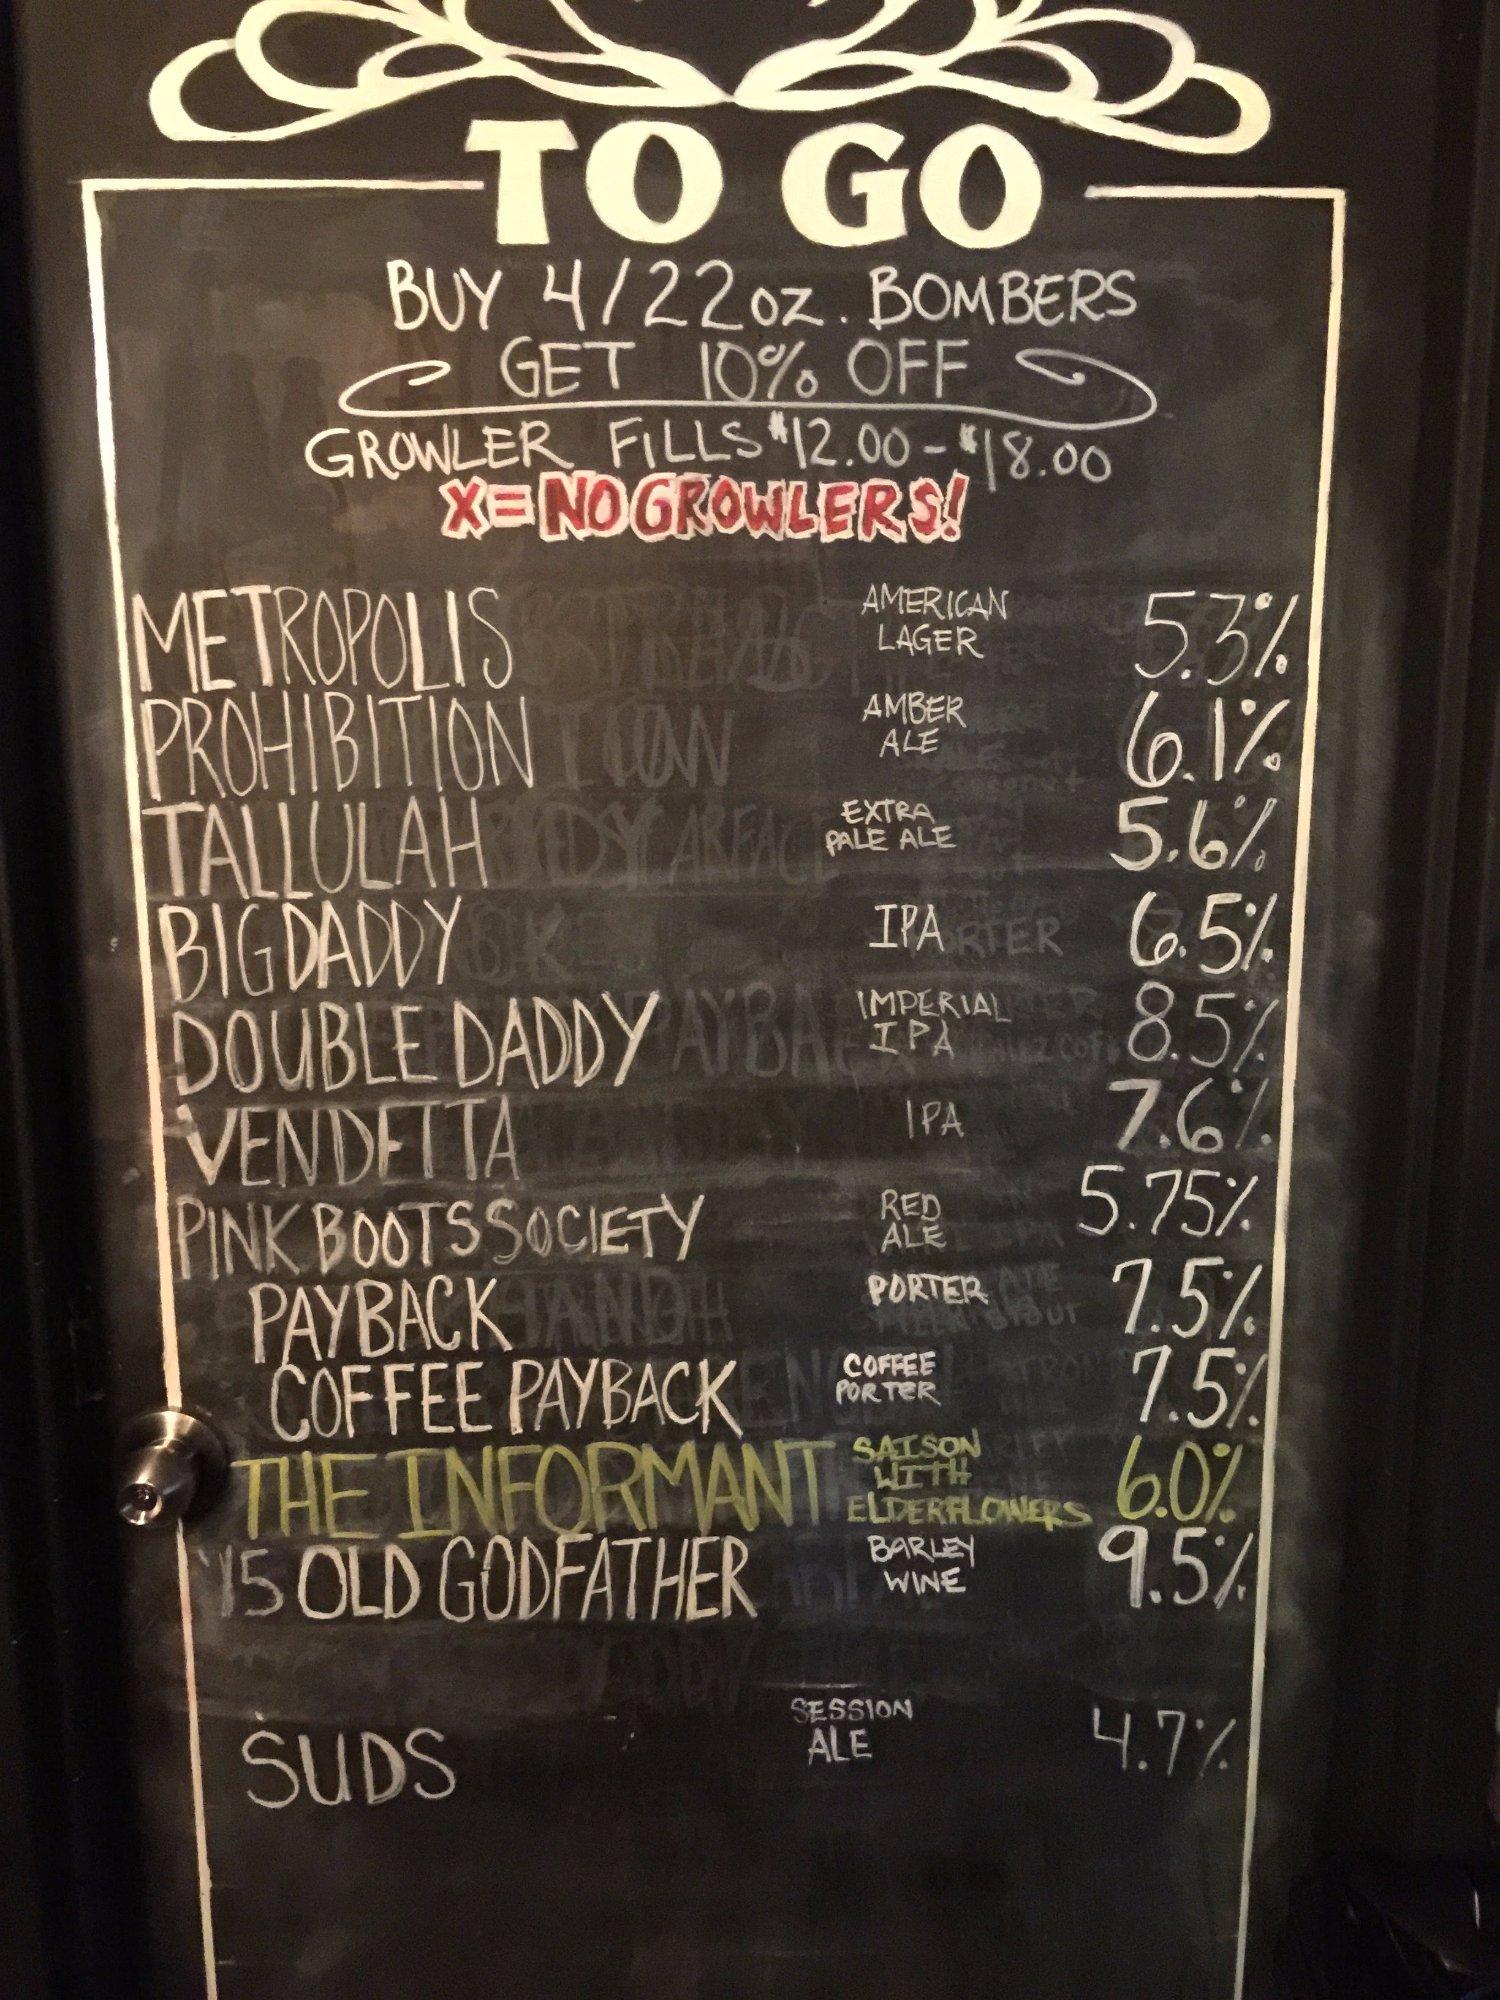 TO GO
BUY 4/22oz. BOMBERS
GET 10% OFF
GROWLER FILLS $12.00-$18.00
X=NO GROWLERS!
METROPOLIS AMERICAN LAGER 5.3%
PROHIBITION AMBER ALE 6.1%
TALLULAH EXTRA PALE ALE 5.6%
BIG DADDY IPA 6.5%
DOUBLE DADDY IMPERIAL IPA 8.5%
VENDETTA IPA 7.6%
PINK BOOTS SOCIETY RED ALE 5.75%
PAYBACK PORTER 7.5%
COFFEE PAYBACK COFFEE PORTER 7.5%
THE INFORMANT SAISON WITH ELDERFLOWERS 6.0%
'15 OLD GODFATHER BARLEY WINE 9.5%
SUDS SESSION ALE 4.7%